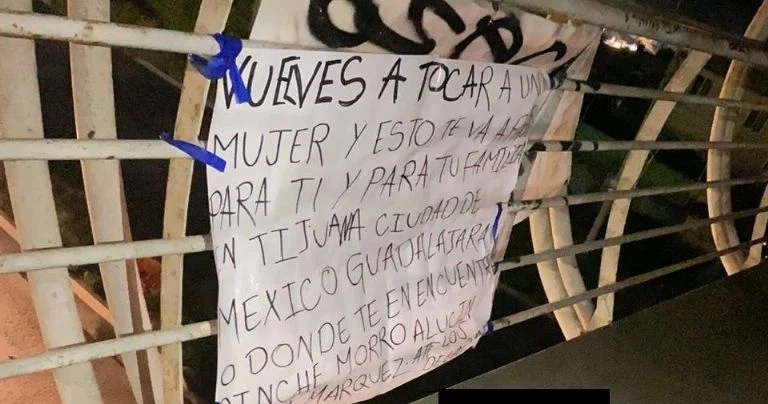 VUELVES A TOCAR A UNA
MUJER Y ESTO TE VA A
PARA TI Y PARA TU FAMILIA
EN TIJUANA CIUDAD DE
MEXICO GUADALAJARA
O DONDE TE EN ENCUENTRE
PINCHE MORRO ALUCIN
MARQUEZ. ATE LOS